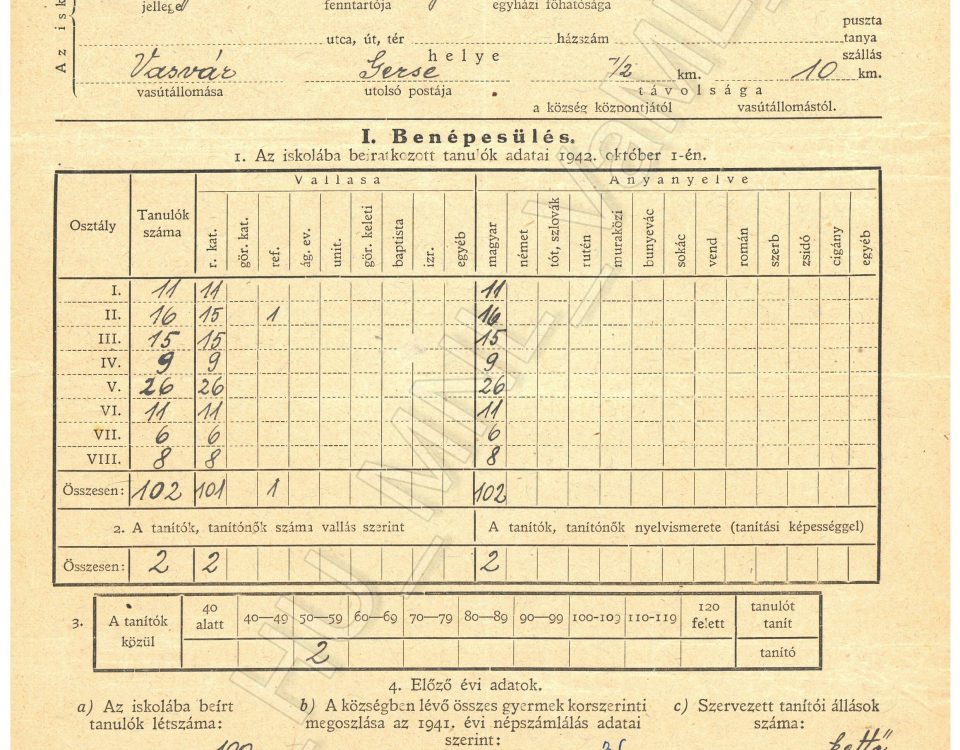 Az isk
jellege fenntartója egyházi főhatósága
utca, út, tér házszám puszta
tanya
szállás
helye
Vasvár Gerse 7/2 km. 10 km.
vasútállomása utolsó postája távolsága
a község központjától vasútállomástól.
I. Benépesülés.
1. Az iskolába beiratkozott tanulók adatai 1942. október 1-én.
Osztály Tanulók száma Vallása Anyanyelve
r. kat. gör. kat. ref. ág. ev. unit. gör. keleti baptista izr. egyéb magyar német tót, szlovák rutén muraközi bunyevác sokác vend román szerb zsidó cigány egyéb
I. 11 11 11
II. 16 15 1 16
III. 15 15 15
IV. 9 9 9
V. 26 26 26
VI. 11 11 11
VII. 6 6 6
VIII. 8 8 8
Összesen: 102 101 1 102
2. A tanítók, tanítónők száma vallás szerint A tanítók, tanítónők nyelvismerete (tanítási képességgel)
Összesen: 2 2 2
3. A tanítók közül 40 alatt 40—49 50—59 60—69 70—79 80—89 90—99 100-109 110-119 120 felett tanulót tanít
2 tanító
4. Előző évi adatok.
a) Az iskolába beírt b) A községben lévő összes gyermek korszerinti c) Szervezett tanítói állások
tanulók létszáma: megoszlása az 1941. évi népszámlálás adatai száma:
szerint:
kettő
HU_MNL_VaML